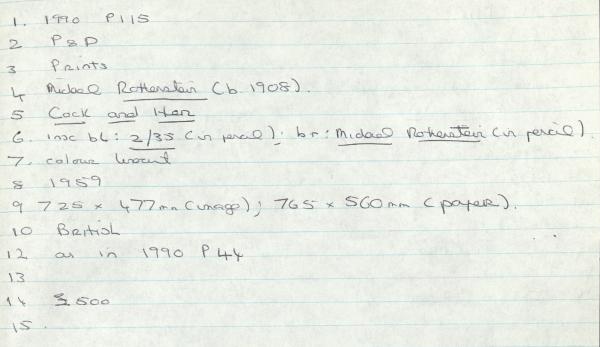 1. 1990 P115
2 P&D
3 Prints
4 Michael Rothenstein (b. 1908).
5 Cock and Hen
6. insc bl: 2/35 (in pencil); br: Michael Rothenstein (in pencil).
7. colour linocut
8 1959
9 725 x 477mm (image); 765 x 560mm (paper).
10 British
12 as in 1990 P44
13
14 £500
15.